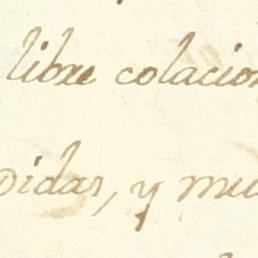 libre colacion
didas, y mu